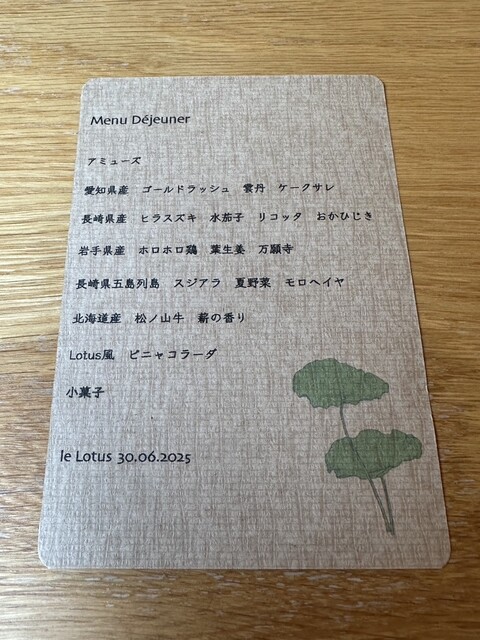 Menu Déjeuner
アミューズ
愛知県産 ゴールドラッシュ 雲丹 ケークサレ
長崎県産 ヒラスズキ 水茄子 リコッタ おかひじき
岩手県産 ホロホロ鶏 葉生姜 万願寺
長崎県五島列島 スジアラ 夏野菜 モロヘイヤ
北海道産 松ノ山牛 薪の香り
Lotus風 ピニャコラーダ
小菓子
le Lotus 30.06.2025